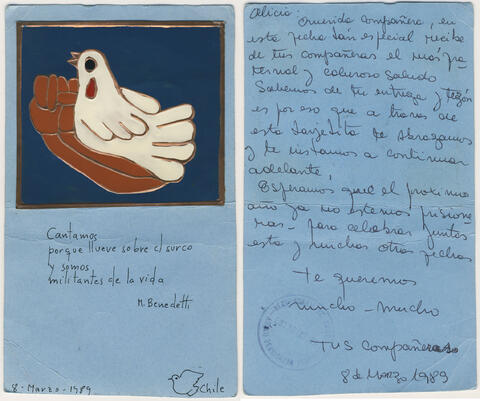 Cantamos
porque llueve sobre el surco
y somos
militantes de la vida
M. Benedetti
8 - Marzo - 1989
Chile
Alicia:
Querida compañera, en
esta fecha tan especial recibe
de tus compañeras el más fra
ternal y caluroso saludo
Sabemos de tu entrega y tezón
es por eso que a travez de
esta tarjetita te abrazamos
y te instamos a continuar
adelante,
Esperamos que el proximo
año ya no estemos prisione
ras- para celebrar juntas
esta y muchas otras fechas
Te queremos
mucho - mucho
Tus compañeras
8 de Marzo 1989